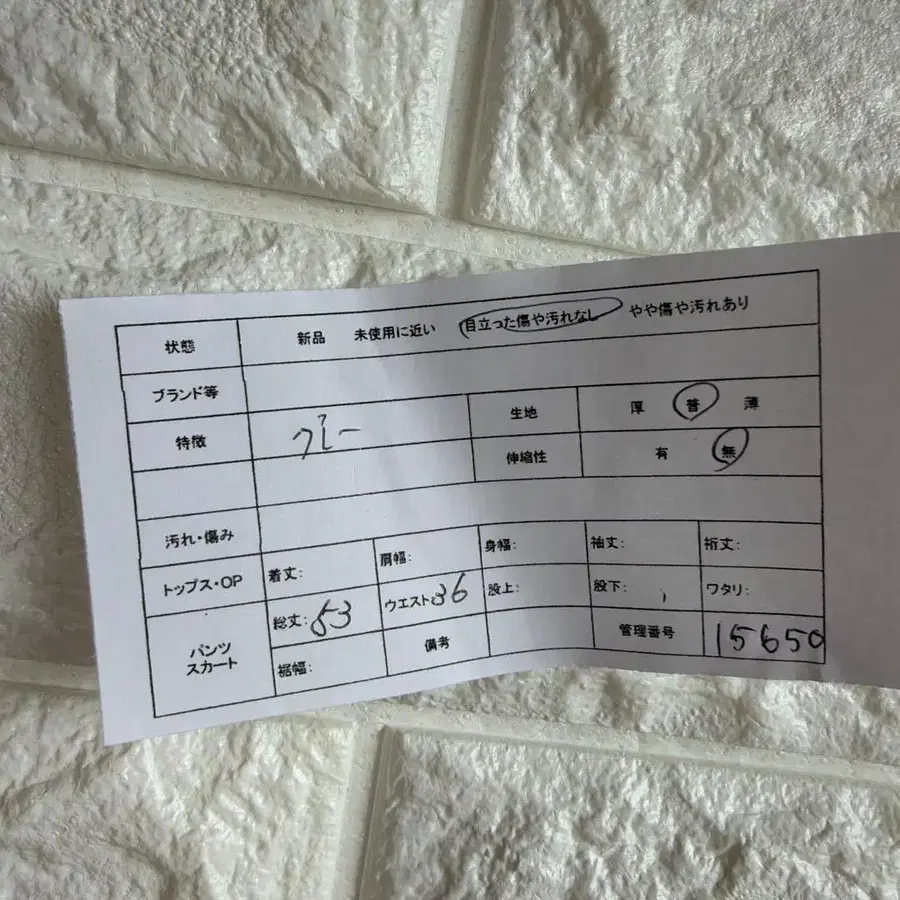 状態 新品 未使用に近い 目立った傷や汚れなし やや傷や汚れあり
ブランド等
特徴 グレー 生地 厚 普 薄
伸縮性 有 無
汚れ・傷み
トップス・OP 着丈: 肩幅: 身幅: 袖丈: 裄丈:
パンツ スカート 総丈: 53 ウエスト: 36 股上: 股下: ワタリ:
裾幅: 備考 管理番号 15650